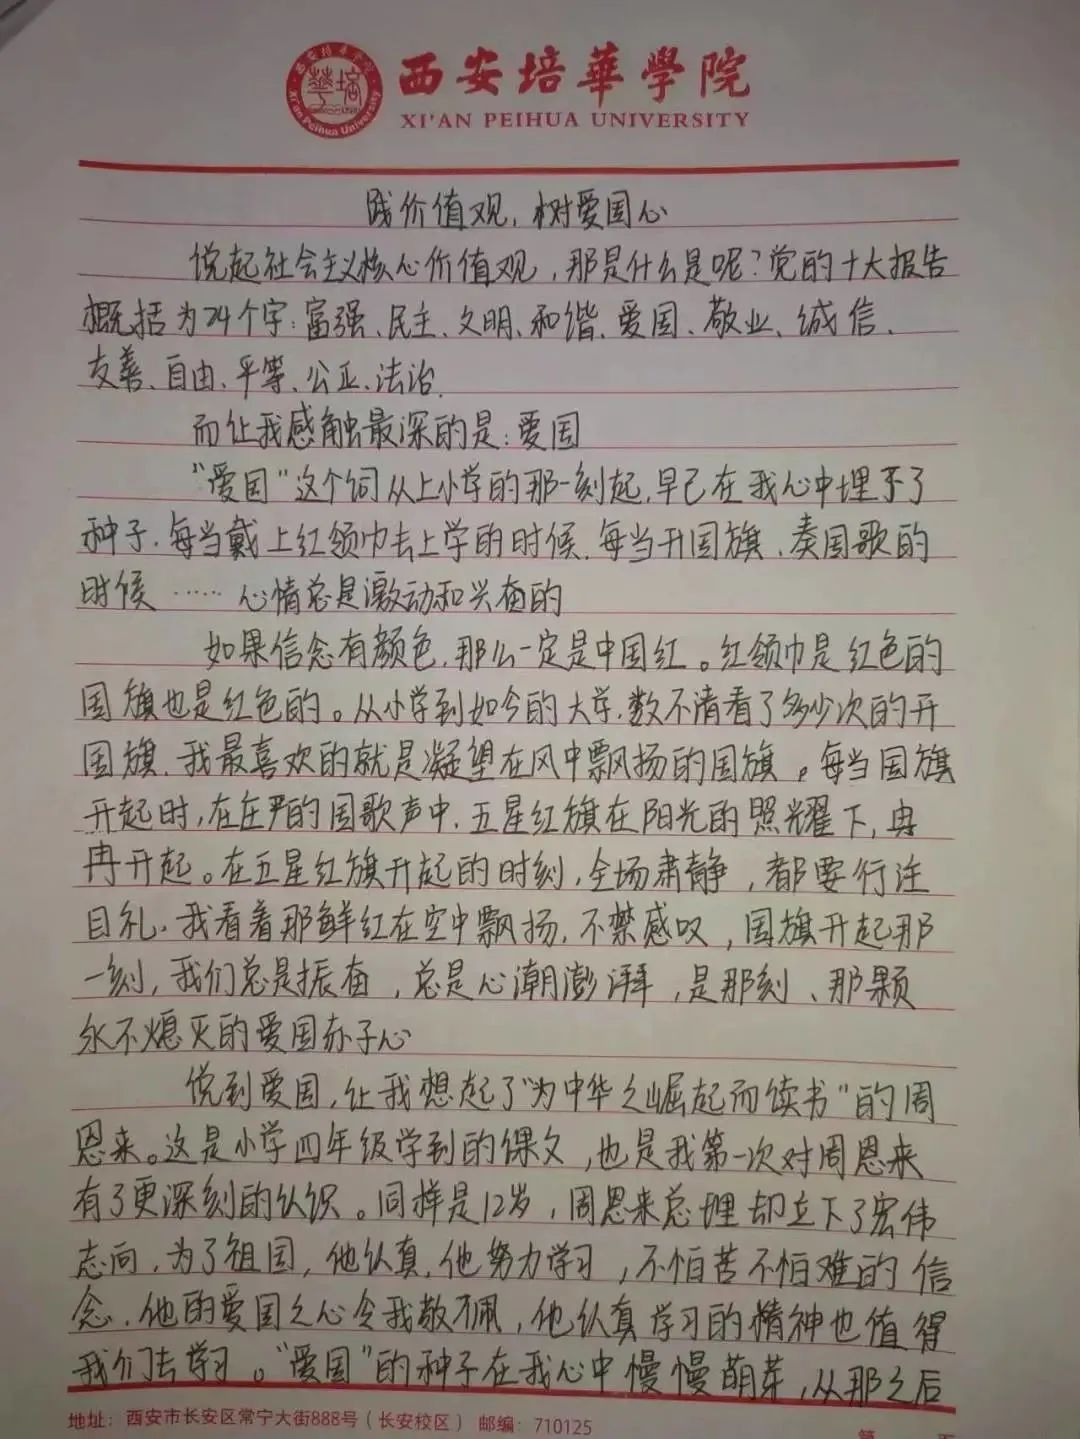 西安培華學院
XI'AN PEIHUA UNIVERSITY
西安培华学院
Xi'an Peihua University
践价值观,树爱国心
说起社会主义核心价值观,那是什么是呢?党的十大报告
概括为24个字:富强、民主、文明、和谐、爱国、敬业、诚信、
友善、自由、平等、公正、法治.
而让我感触最深的是:爱国
“爱国”这个词从上小学的那一刻起,早已在我心中埋下了
种子.每当戴上红领巾去上学的时候、每当升国旗、奏国歌的
时候……心情总是激动和兴奋的
如果信念有颜色,那么一定是中国红。红领巾是红色的
国旗也是红色的。从小学到如今的大学,数不清看了多少次的升
国旗.我最喜欢的就是凝望在风中飘扬的国旗。每当国旗
升起时,在庄严的国歌声中.五星红旗在阳光的照耀下,冉
冉升起。在五星红旗升起的时刻,全场肃静,都要行注
目礼.我看着那鲜红在空中飘扬.不禁感叹,国旗升起那
一刻,我们总是振奋,总是心潮澎湃,是那刻、那颗
永不熄灭的爱国赤子心
说到爱国,让我想起了“为中华之崛起而读书”的周
恩来。这是小学四年级学到的课文,也是我第一次对周恩来
有了更深刻的认识。同样是12岁,周恩来总理却立下了宏伟
志向,为了祖国,他认真,他努力学习,不怕苦不怕难的信
念.他的爱国之心令我敬佩,他认真学习的精神也值得
我们去学习。“爱国”的种子在我心中慢慢萌芽,从那之后
地址:西安市长安区常宁大街888号(长安校区) 邮编:710125
第 页